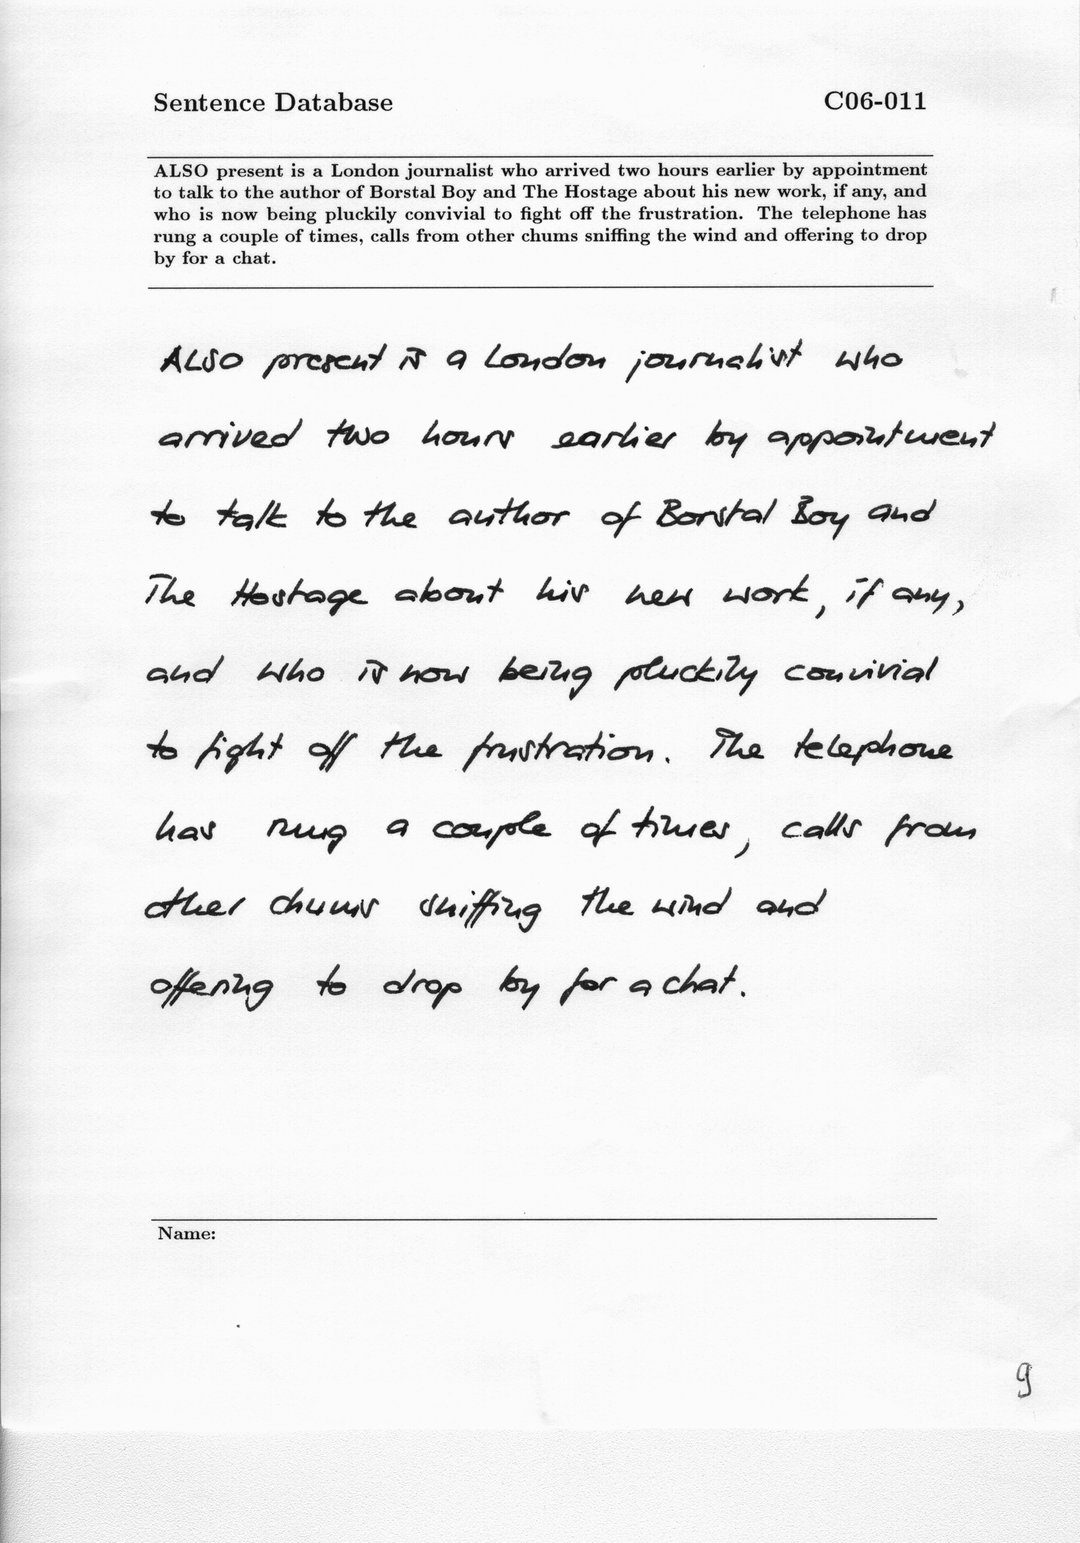 Sentence Database C06-011
ALSO present is a London journalist who arrived two hours earlier by appointment
to talk to the author of Borstal Boy and The Hostage about his new work, if any, and
who is now being pluckily convivial to fight off the frustration. The telephone has
rung a couple of times, calls from other chums sniffing the wind and offering to drop
by for a chat.
ALSO present is a London journalist who
arrived two hours earlier by appointment
to talk to the author of Borstal Boy and
The Hostage about his new work, if any,
and who is now being pluckily convivial
to fight off the frustration. The telephone
has rung a couple of times, calls from
other chums sniffing the wind and
offering to drop by for a chat.
Name:
9